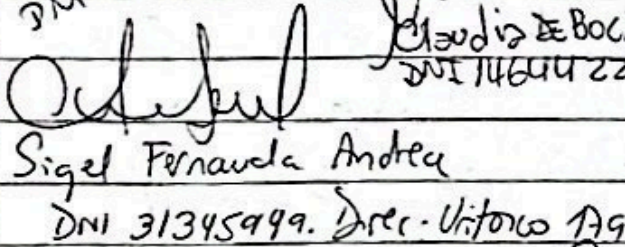 DNI
Claudia DE BOC
DNI 1464422
Sigel Fernanda Andrea
DNI 31345949. Direc.